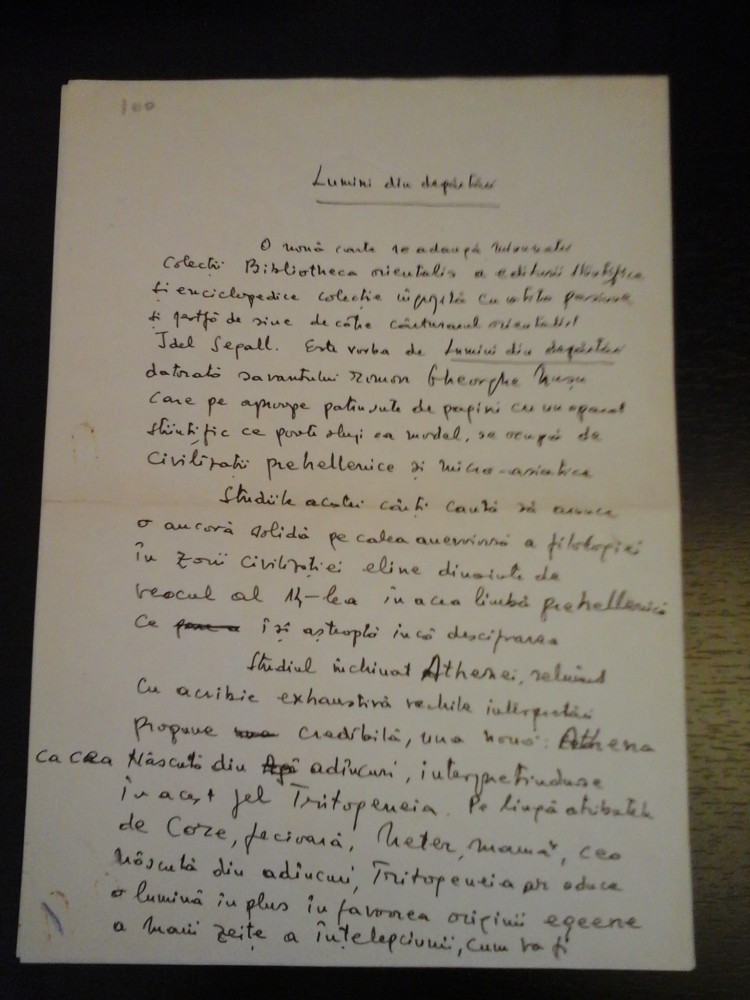 100
Lumini din depărtări
O nouă carte se adaugă minunatei
colecții Bibliotheca orientalis a editurii științifice
și enciclopedice colecție îngrijită cu atîta pasiune
și jertfă de sine de către cărturarul orientalist
Idel Segall. Este vorba de Lumini din depărtări
datorată savantului roman Gheorghe Mușu
care pe aproape patrusute de pagini cu un aparat
științific ce poate sluji ca model, se ocupă de
civilizații prehellenice și micro-asiatice
Studiile acestei cărți caută să arunce
o ancoră solidă pe calea anevoioasă a filologiei
în zorii civilizației eline dinainte de
veacul al 14-lea în acea limbă prehellenică
ce își așteaptă încă descifrarea
Studiul închinat Athenei, reluînd
cu acribie exhaustivă vechile interpretări
propune credibilă, una nouă: Athena
ca cea Născută din adîncuri, interpretînduse
în acest fel Tritogeneia. Pe lîngă atributele
de Core, fecioară, Meter, mamă, cea
născută din adîncuri, Tritogeneia ar aduce
o lumină în plus în favoarea originii egeene
a marii zeițe a înțelepciunii, cum va fi